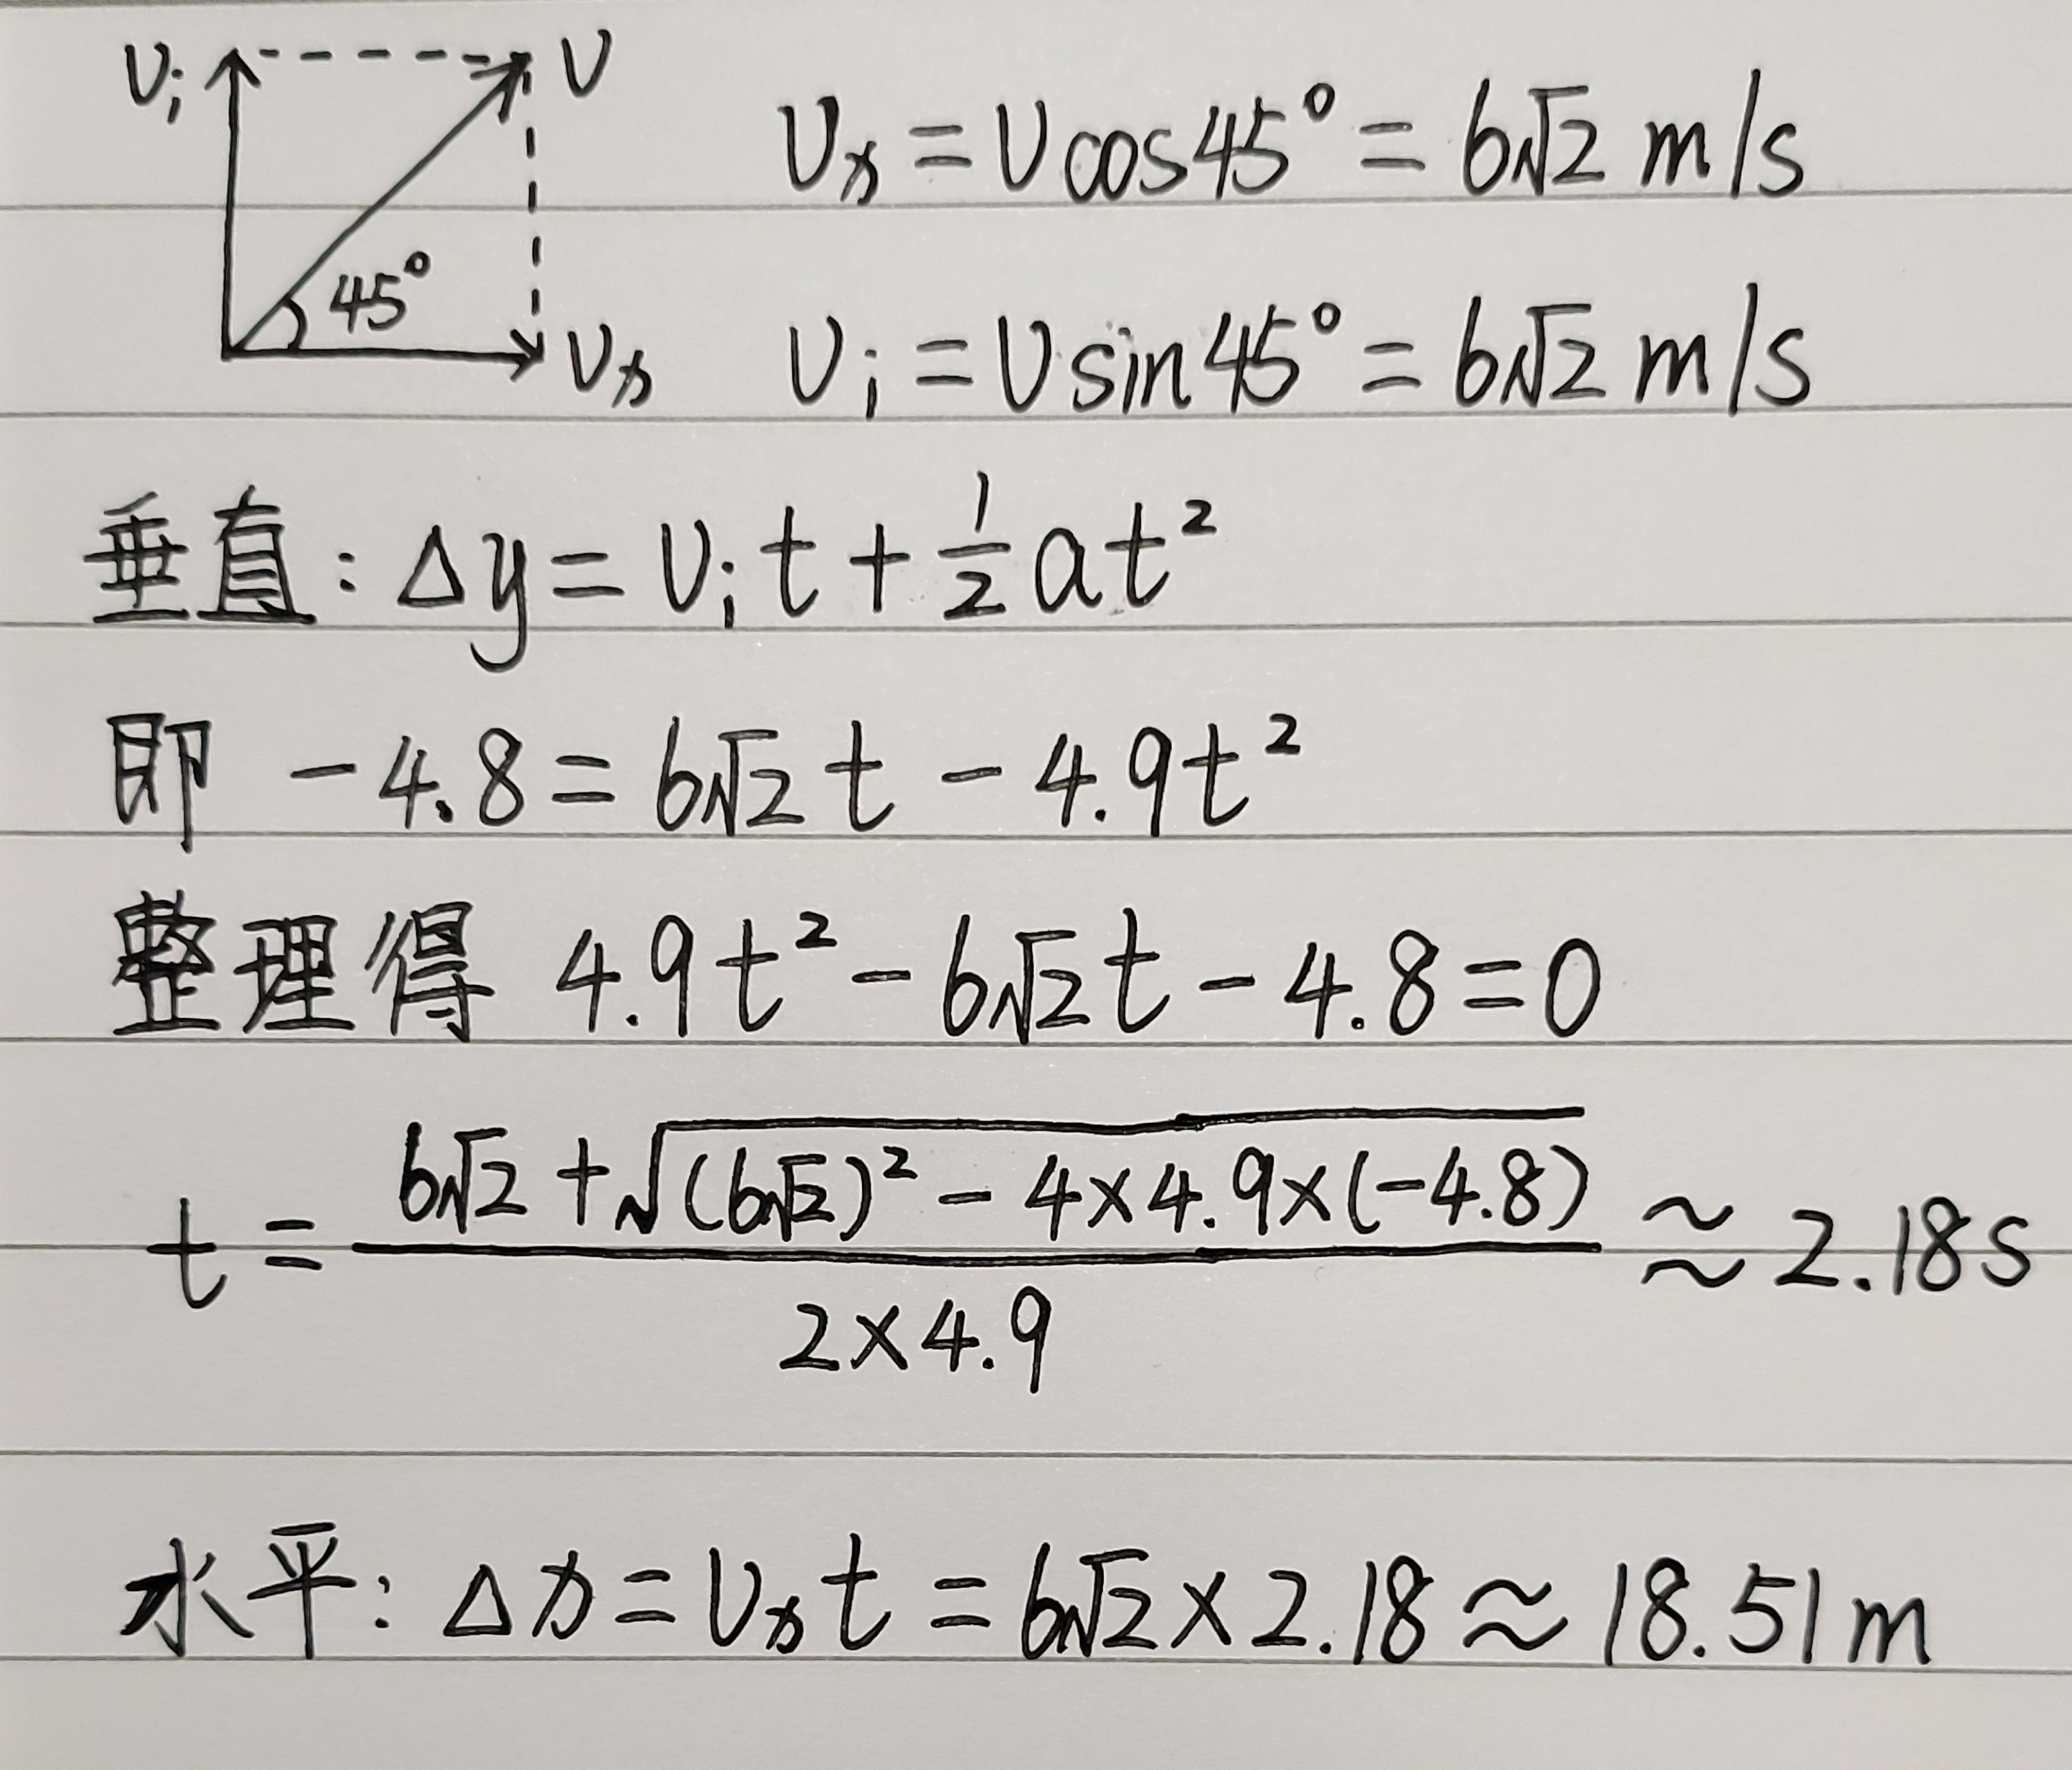 Vᵢ V
45° Vₓ
Vₓ = V cos45° = 6√2 m/s
Vᵢ = V sin45° = 6√2 m/s
垂直: Δy = Vᵢt + ½at²
即 -4.8 = 6√2 t - 4.9t²
整理得 4.9t² - 6√2 t - 4.8 = 0
t = (6√2 + √((6√2)² - 4×4.9×(-4.8))) / (2×4.9) ≈ 2.18s
水平: Δx = Vₓt = 6√2 × 2.18 ≈ 18.51m